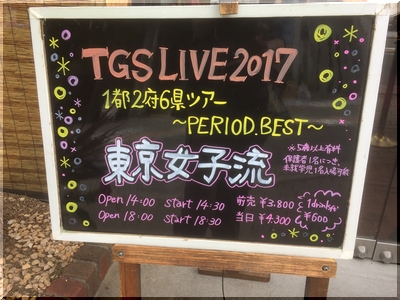 TGS LIVE 2017
1都2府6県ツアー
〜PERIOD.BEST〜
東京女子流
※5歳以上有料
保護者1名につき、
未就学児1名入場可能
Open 14:00 Start 14:30
Open 18:00 Start 18:30
前売 ¥3.800
当日 ¥4.300
1drink代
¥600